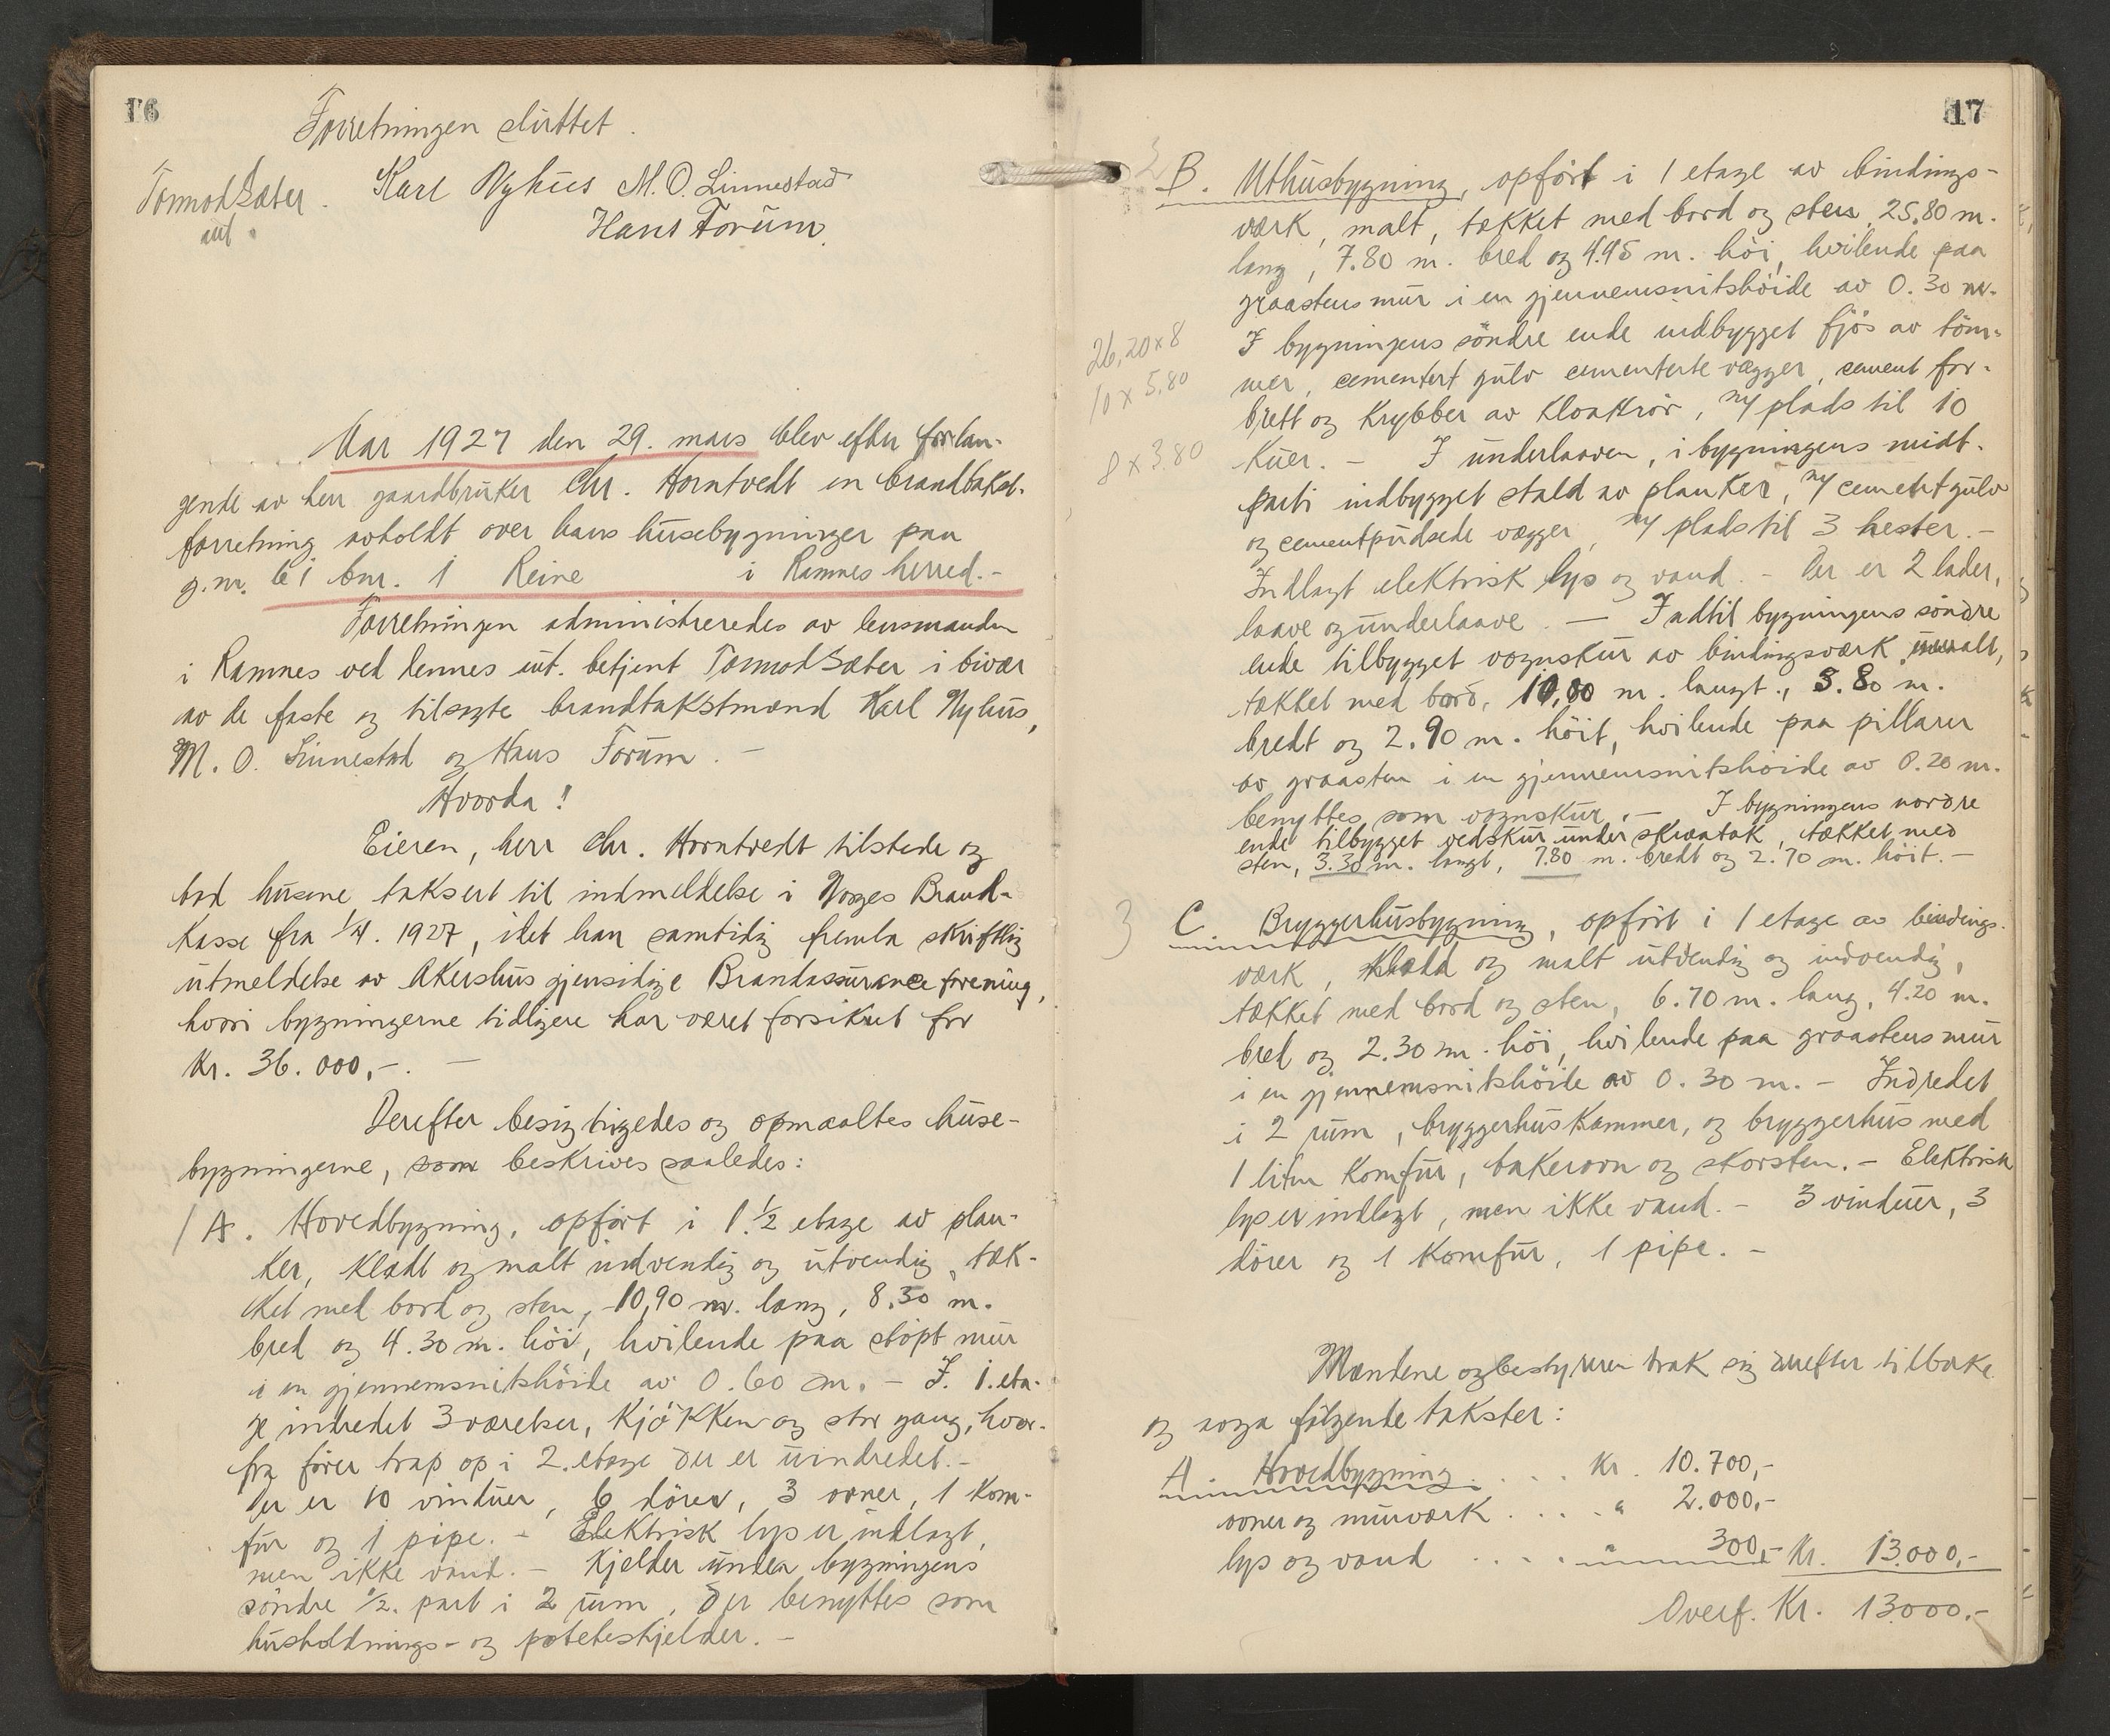 16
Forretningen sluttet.
Tormod Sæter.
aut.
Karl Nyhus M. O. Linnestad
Hans Forum.
Aar 1927 den 29. mars blev efter forlan-
gende av herr gaardbruker Chr. Horntvedt en brandtakst-
forretning avholdt over hans husebygninger paa
g.nr. 61 bnr. 1 Reine i Ramnes herred.-
Forretningen administreredes av lensmanden
i Ramnes ved dennes aut. betjent Tormod Sæter i bivær
av de faste og tilsagte brandtakstmænd Karl Nyhus,
M. O. Linnestad og Hans Forum. -
Hvorda!
Eieren, herr Chr. Horntvedt tilstede og
bad husene taksert til indmeldelse i Norges Brand-
kasse fra 1/4. 1927, idet han samtidig fremla skriftlig
utmeldelse av Akershus gjensidige Brandassuranceforening,
hvori bygningerne tidligere har været forsikret for
Kr. 36.000,-. -
Derefter besigtigedes og opmaaltes huse-
bygningerne, som beskrives saaledes:
1 A. Hovedbygning, opført i 1 1/2 etage av plan-
ker, klædt og malt indvendig og utvendig, tæk-
ket med bord og sten, 10,90 m. lang, 8.30 m.
bred og 4.30 m. høi, hvilende paa støpt mur
i en gjennemsnitshøide av 0.60 m. - I. 1. eta-
ge indredet 3 værelser, kjøkken og stor gang, hvor-
fra fører trap op i 2. etage der er uindredet.-
Der er 10 vinduer, 6 dører, 3 ovner, 1 kom-
fur og 1 pipe. - Elektrisk lys er indlagt,
men ikke vand. - Kjelder under bygningens
søndre 1/2. part i 2 rum, der benyttes som
husholdnings- og poteteskjelder. -
17
2
B. Uthusbygning, opført i 1 etage av bindings-
værk, malt, tækket med bord og sten, 25.80 m.
lang, 7.80 m. bred og 4.95 m. høi, hvilende paa
graastensmur i en gjennemsnitshøide av 0.30 m.
26,20 x 8
10 x 5.80
8 x 3.80
I bygningens søndre ende indbygget fjøs av tøm-
mer, cementert gulv cementerte vægger, cement for-
brett og krybber av kloakrør, m/ plads til 10
kuer. - I underlaaven, i bygningens midt-
parti indbygget stald av planker, m/ cementgulv
og cementpudsede vægger, m/ plads til 3 hester. -
Indlagt elektrisk lys og vand. - Der er 2 lader,
laave og underlaave. - Indtil bygningens søndre
ende tilbygget vognskur av bindingsværk, umalt,
tækket med bord, 10,00 m. langt, 3.80 m.
bredt og 2.90 m. høit, hvilende paa pillarer
av graasten i en gjennemsnitshøide av 0.20 m.
benyttes som vognskur. - I bygningens nordre
ende tilbygget vedskur under skraatak, tækket med
sten, 3.30 m. langt, 7.80 m. bredt og 2.70 m. høit. -
3
C. Bryggerhusbygning, opført i 1 etage av bindings-
værk, klædd og malt utvendig og indvendig,
tækket med bord og sten, 6.70 m. lang, 4.20 m.
bred og 2.30 m. høi, hvilende paa graastensmur
i en gjennemsnitshøide av 0.30 m. - Indredet
i 2 rum, bryggerhuskammer, og bryggerhus med
1 liten komfur, bakerovn og skorsten. - Elektrisk
lys er indlagt, men ikke vand. - 3 vinduer, 3
dører og 1 komfur, 1 pipe. -
Mændene og bestyreren trak sig derefter tilbake
og avga følgende takster:
A. Hovedbygning . . . . Kr. 10.700,-
ovner og murværk . . . . " 2.000,-
lys og vand . . . . " 300,- Kr. 13.000,-
Overf. Kr. 13.000,-